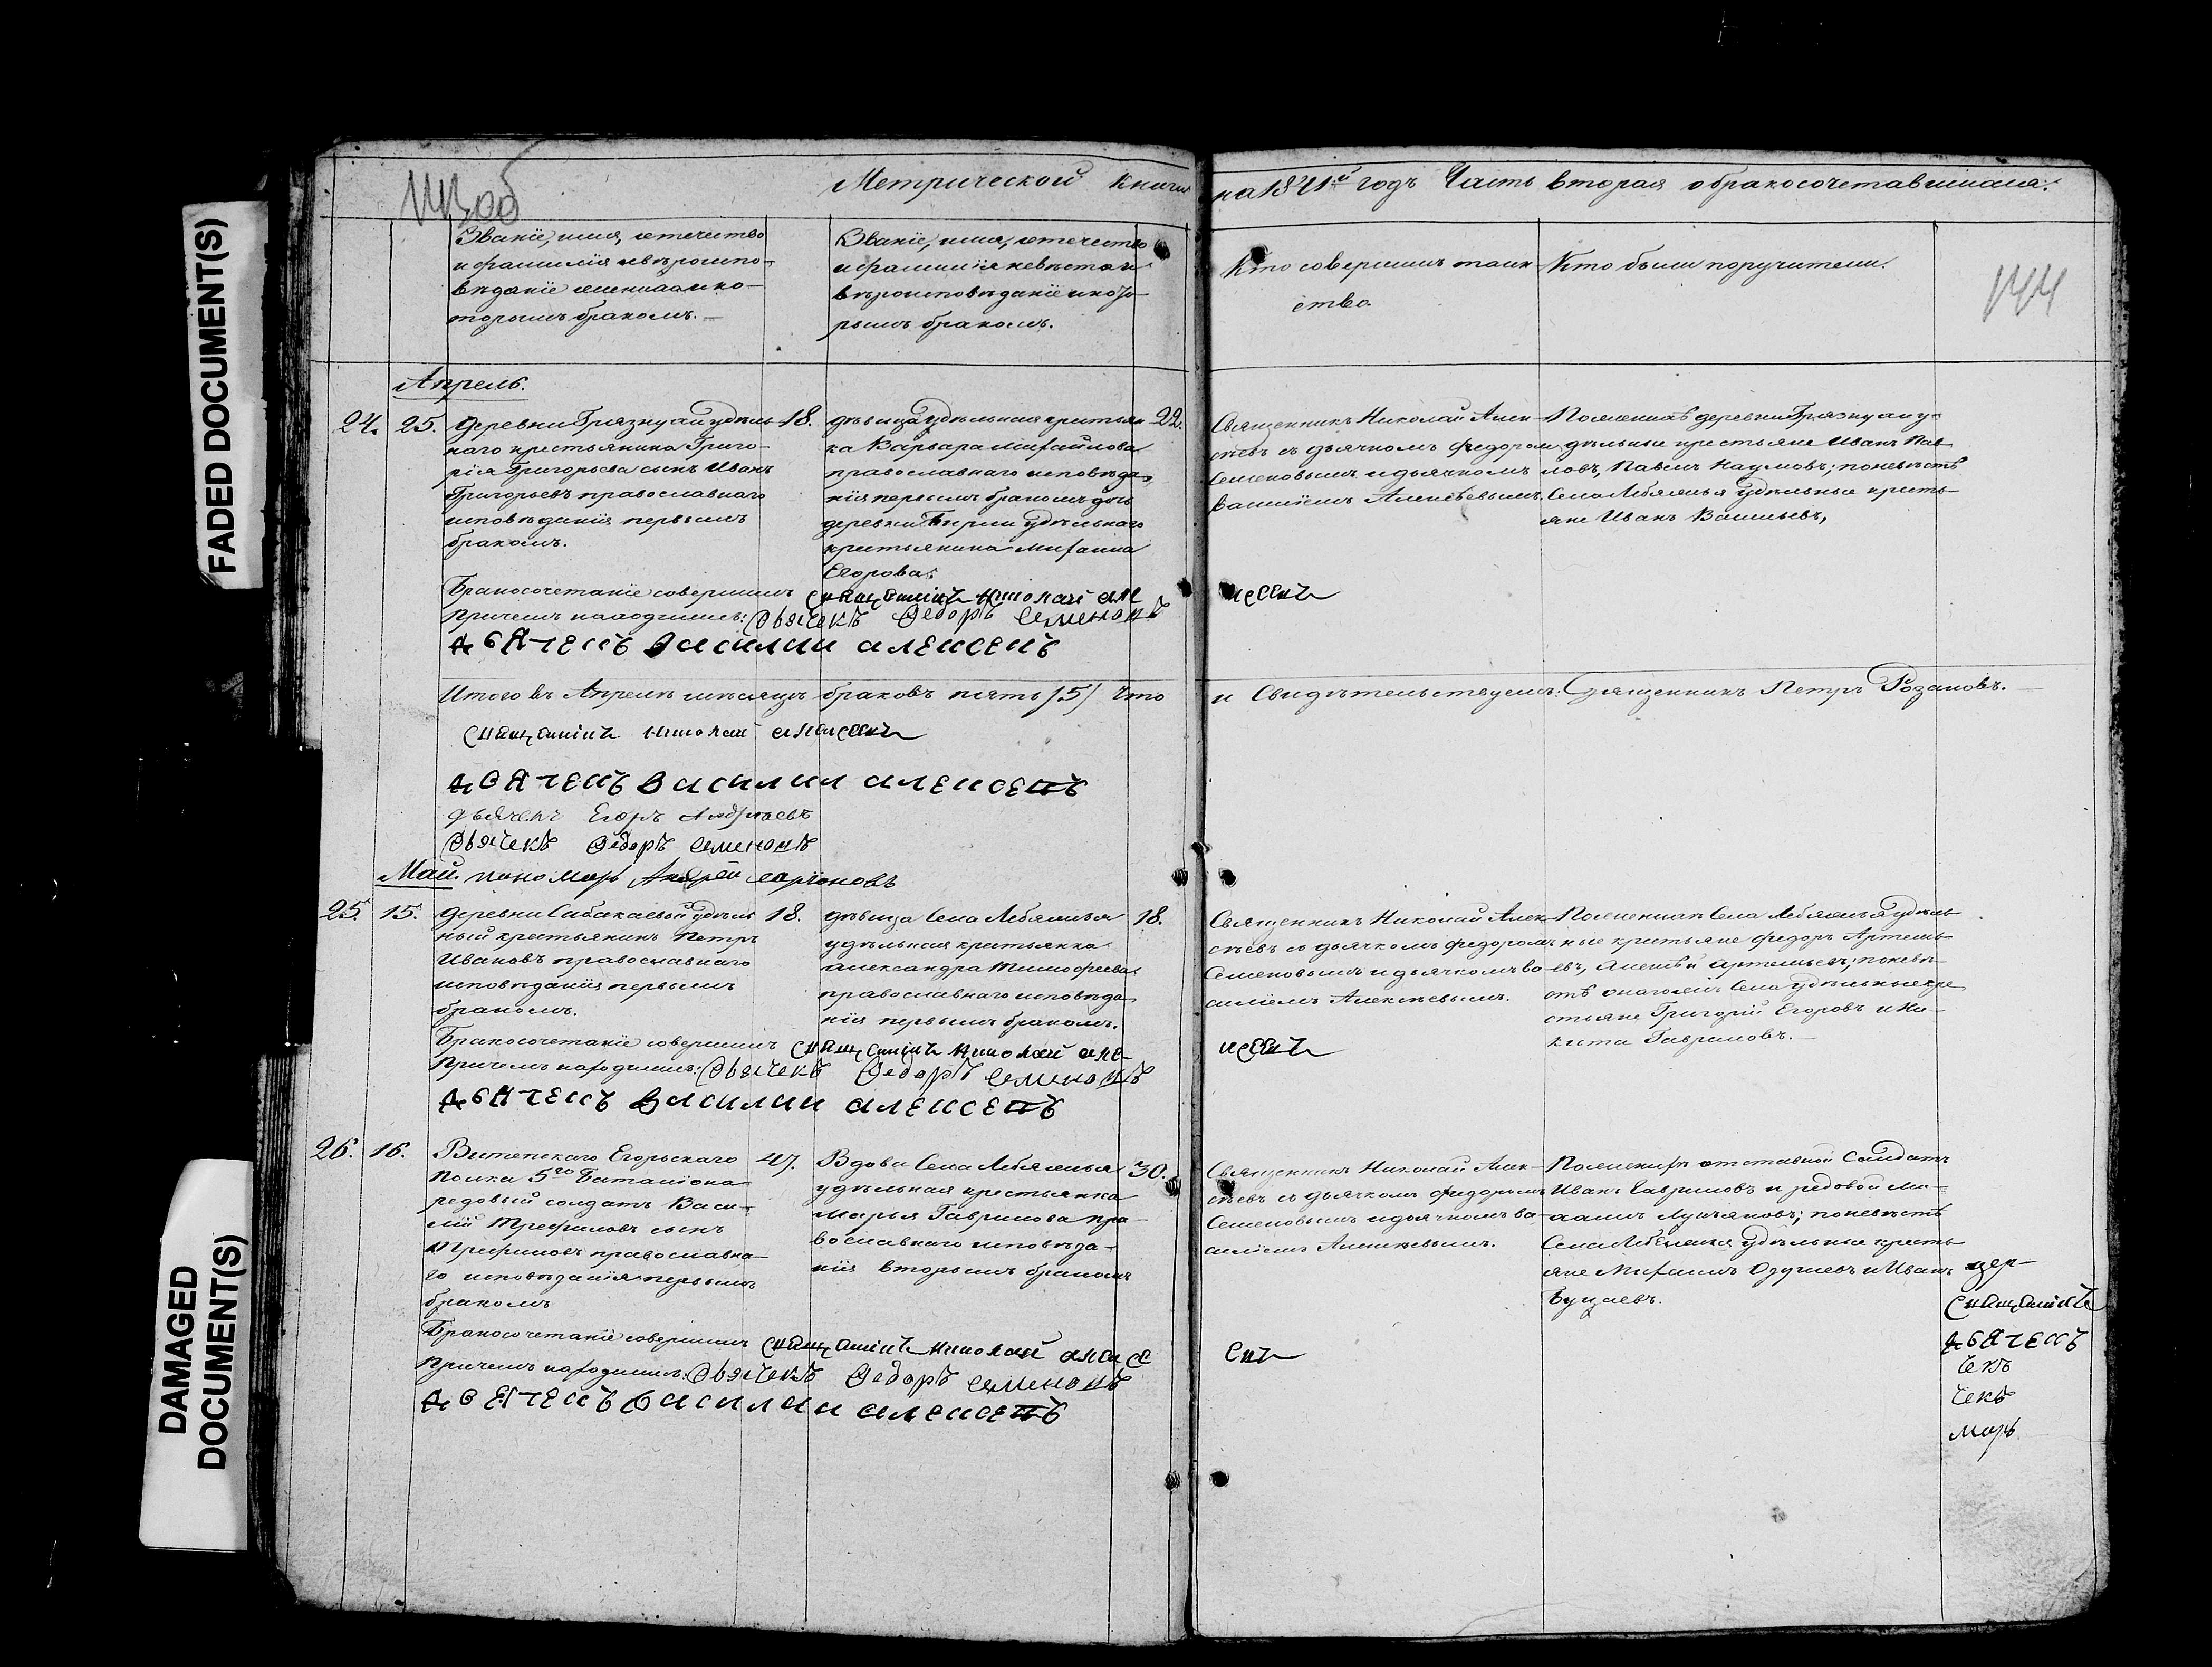 FADED DOCUMENT(S)
DAMAGED DOCUMENT(S)
143 об
Метрической книги на 1841й годъ Часть вторая о бракосочетавшихся.
144
Званіе, имя, отечество
и фамилія и вѣроиспо-
вѣданіе жениха и ко-
торымъ бракомъ.
Званіе, имя, отечество
и фамилія невѣсты и
вѣроисповѣданіе и кото-
рымъ бракомъ.
Кто совершилъ таин-
ство.
Кто были поручители.
Апрель.
24. 25.
деревни Грязнухи удѣль-
наго крестьянина Григо-
рія Григорьева сынъ Иванъ
Григорьевъ православнаго
исповѣданія первымъ
бракомъ.
18.
дѣвица удѣльная крестьян
ка Варвара Михайлова
православнаго исповѣда-
нія первымъ бракомъ дочь
деревни Бирли удѣльнаго
крестьянина Михаила
Егорова.
22.
Священникъ Николай Алек-
сѣевъ съ дьячкомъ Федоромъ
Семеновымъ и дьячкомъ
Василіемъ Алексѣевымъ.
По женихѣ деревни Грязнухи у-
дѣльные крестьяне Иванъ Пав-
ловъ, Павелъ Наумовъ; по невѣстѣ
Села Лебяжья удѣльные кресть-
яне Иванъ Васильевъ,
Бракосочетаніе совершилъ священникъ николай але
ксѣевъ
Причемъ находились: Дьячекъ Федоръ Семеновъ
дьячекъ Василии алексевъ
Итого въ Апрелѣ мѣсяцѣ браковъ пять /5/ что
и Свидѣтельствуемъ: Священникъ Петръ Розановъ.
священникъ николай алексевъ
дьячекъ Василии алексевъ
дьячекъ Егоръ Андреевъ
Дьячекъ Федоръ Семеновъ
Май. пономарь Андрей
25. 15.
деревни Сабакаевой удѣль
ный крестьянинъ Петръ
Ивановъ православнаго
исповѣданія первымъ
бракомъ.
18.
дѣвица Села Лебяжья
удѣльная крестьянка
Александра Тимофеева
православнаго исповѣда
нія первымъ бракомъ.
18.
Священникъ Николай Алек-
сѣевъ съ дьячкомъ Федоромъ
Семеновымъ и дьячкомъ Ва-
силіемъ Алексѣевымъ.
По женихѣ Села Лебяжья удѣль-
ные крестьяне Федоръ Артемь-
евъ, Алексѣй Артемьевъ; по невѣ-
стѣ онагожъ Села удѣльные кре
стьяне Григорій Егоровъ и Ни-
кита Гавриловъ.
Бракосочетаніе совершилъ священникъ николай але-
ксевъ
Причемъ находились: Дьячекъ Федоръ Семеновъ
дьячекъ Василии алексевъ
26. 16.
Витепскаго Егорьскаго
Полка 5го Баталіона
редовый солдатъ Васи-
лій Трефиловъ сынъ
Трефиловъ православна-
го исповѣданія первымъ
бракомъ
47.
Вдова Села Лебяжья
удѣльная крестьянка
Марья Гаврилова пра-
вославнаго исповѣда-
нія вторымъ бракомъ
30.
Священникъ Николай Алек-
сѣевъ съ дьячкомъ Федоромъ
Семеновымъ и дьячкомъ Ва-
силіемъ Алексѣевымъ.
По женихѣ отставной Солдатъ
Иванъ Гавриловъ и редовой Ми-
хаилъ Лукъяновъ; по невѣстѣ
Села Лебяжья удѣльные кресть
яне Михаилъ и Иванъ
Бракосочетаніе совершилъ священникъ николай алексе
евъ
Причемъ находились: Дьячекъ Федоръ Семеновъ
дьячекъ Василии алексевъ
цер-
священникъ
дьячекъ
чекъ
чекъ
марь